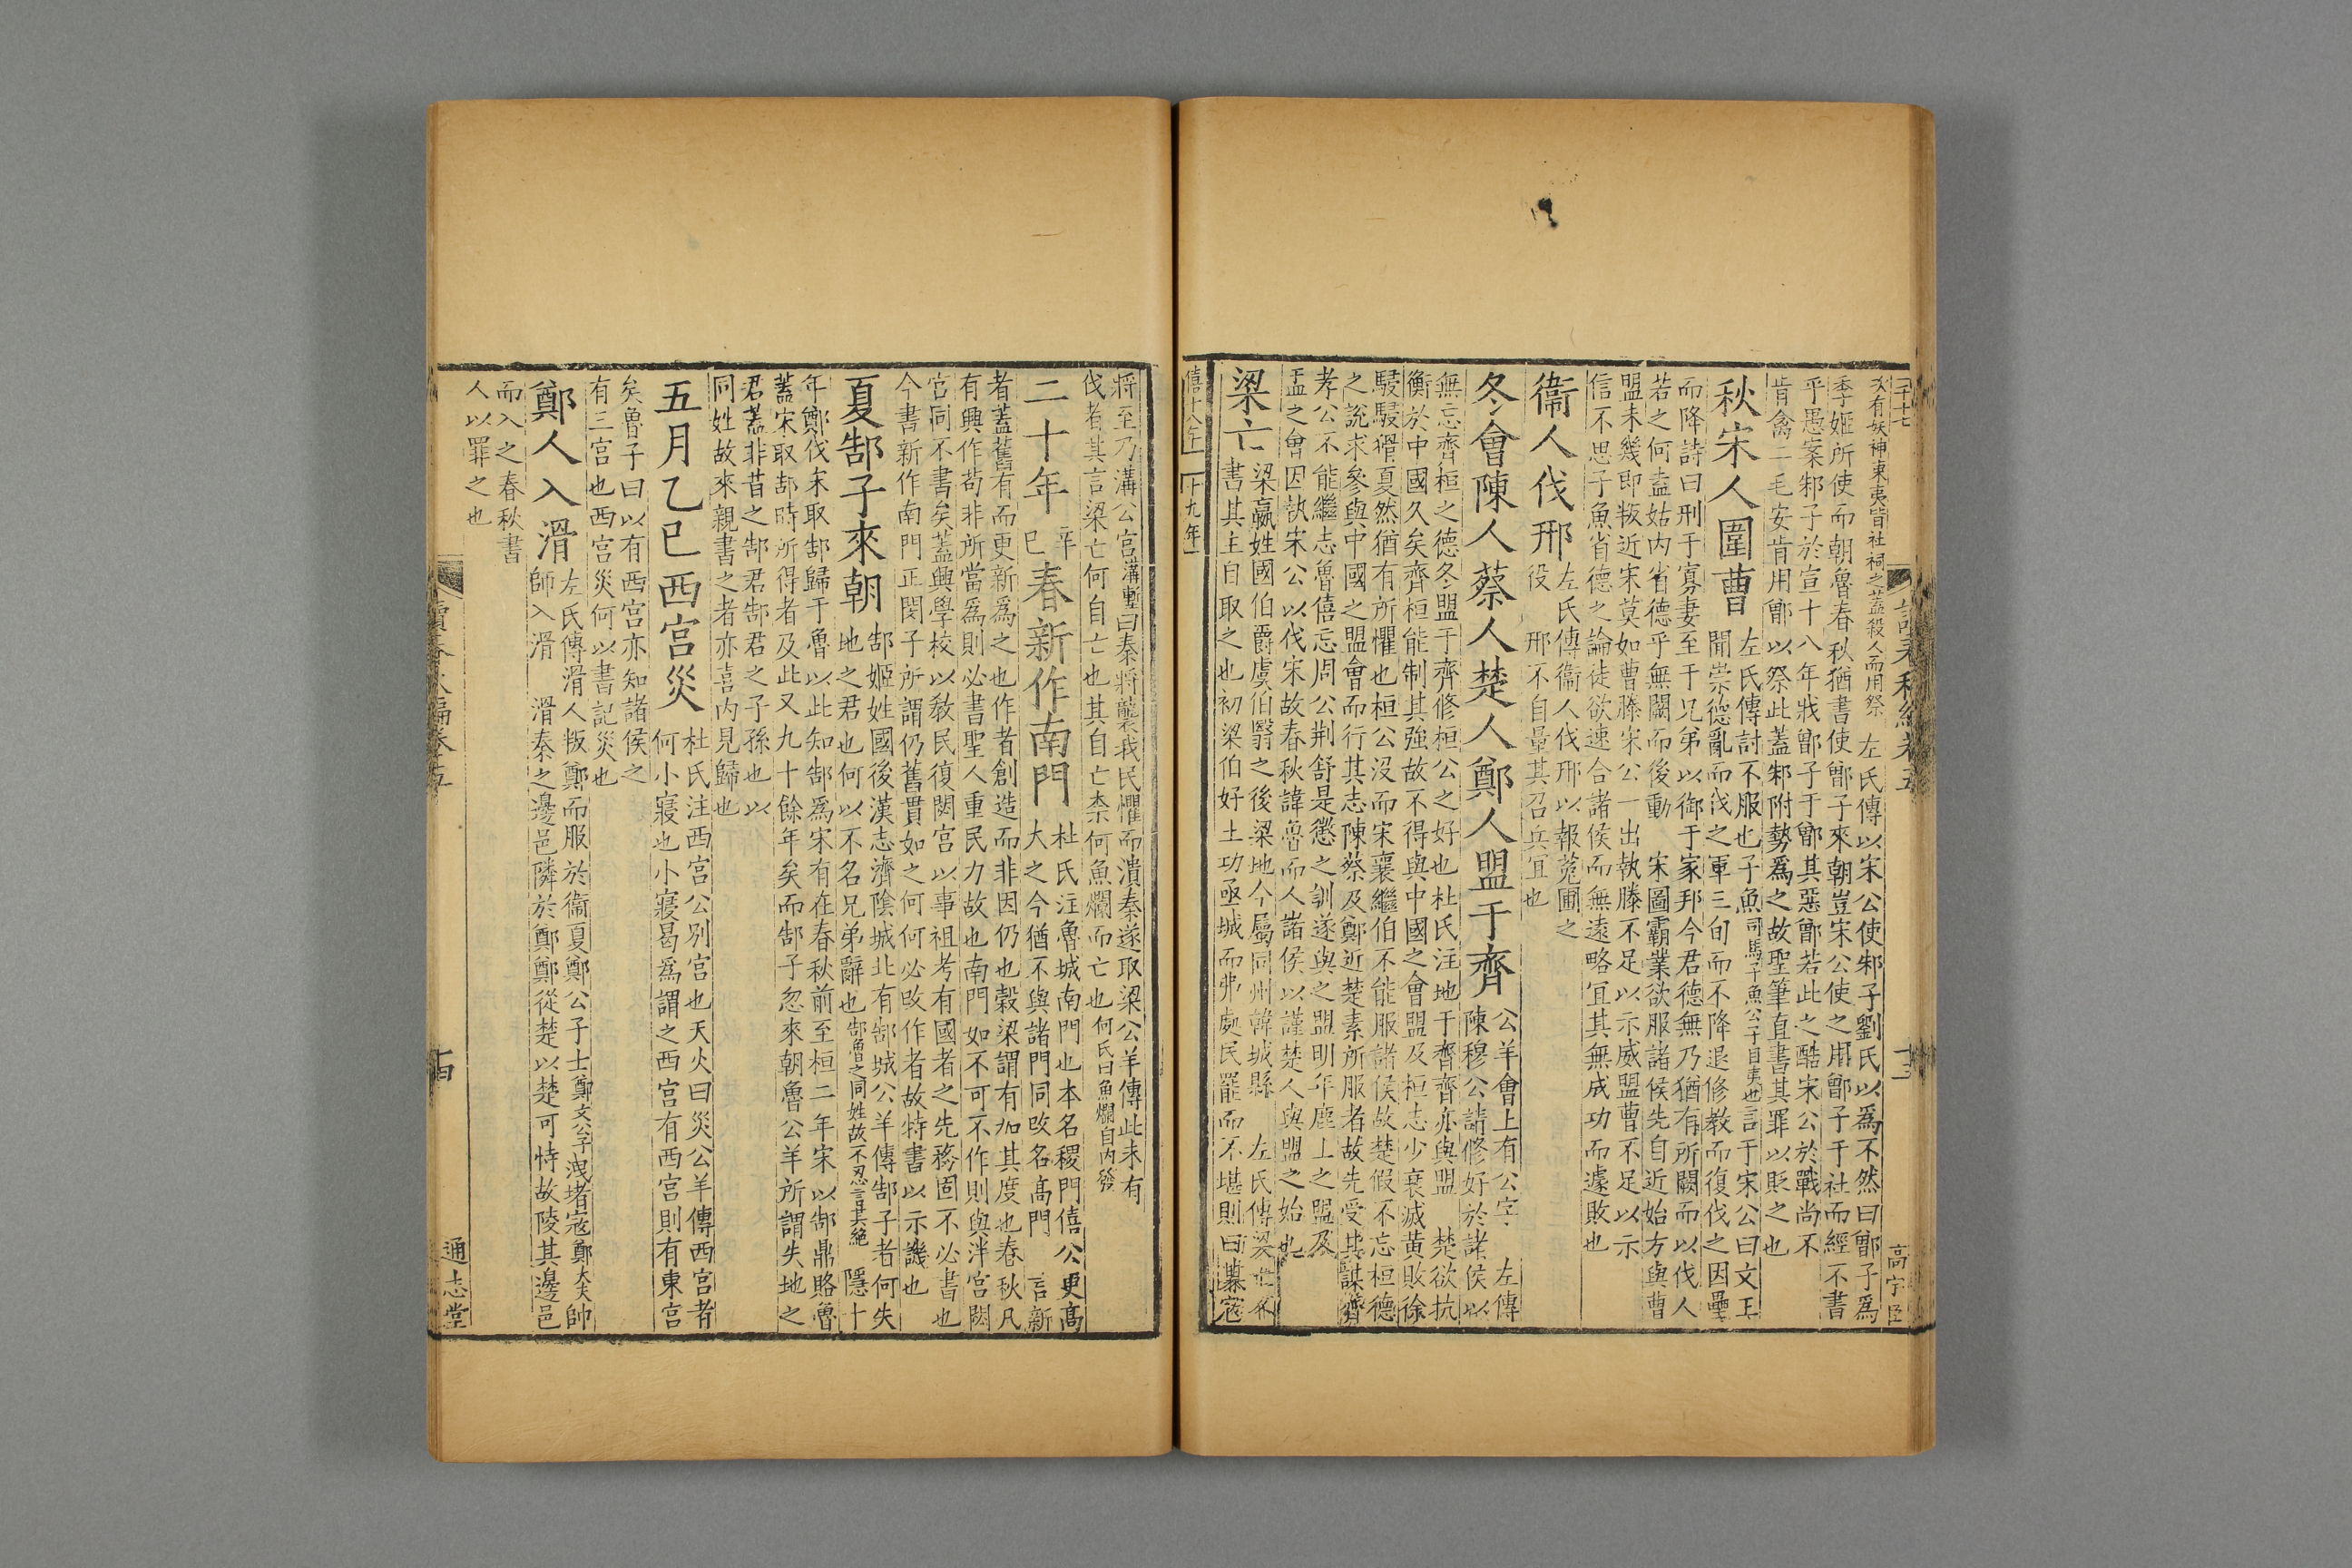 二十七
讀春秋編卷五
十三
高宇臣
次有妖神東夷皆社祠之蓋殺人而用祭 左氏傳以宋公使邾子劉氏以爲不然曰鄫子爲
季姬所使而朝魯春秋猶書使鄫子來朝豈宋公使之用鄫子于社而經不書
乎愚案邾子於宣十八年戕鄫子于鄫其惡鄫若此之酷宋公於戰尚不
肯禽二毛安肯用鄫以祭此蓋邾附勢爲之故聖筆直書其罪以貶之也
秋宋人圍曹
左氏傳討不服也子魚司馬子魚公子目夷也言于宋公曰文王
聞崇德亂而伐之軍三旬而不降退修教而復伐之因壘
而降詩曰刑于寡妻至于兄弟以御于家邦今君德無乃猶有所闕而以伐人
若之何盍姑内省德乎無闕而後動 宋圖霸業欲服諸侯先自近始方與曹
盟未幾即叛近宋莫如曹滕宋公一出執滕不足以示威盟曹不足以示
信不思子魚省德之論徒欲速合諸侯而無遠略冝其無成功而遽敗也
衞人伐邢
左氏傳衞人伐邢以報菟圃之
役 邢不自量其召兵冝也
冬會陳人蔡人楚人鄭人盟于齊
公羊會上有公字 左傳
陳穆公請修好於諸侯以
無忘齊桓之德冬盟于齊修桓公之好也杜氏注地于齊齊亦與盟 楚欲抗
衡於中國久矣齊桓能制其強故不得與中國之會盟及桓志少衰滅黃敗徐
駸駸猾夏然猶有所懼也桓公没而宋襄繼伯不能服諸侯故楚假不忘桓德
之說求參與中國之盟會而行其志陳蔡及鄭近楚素所服者故先受其謀齊
孝公不能繼志魯僖忘周公荆舒是懲之訓遂與之盟明年鹿上之盟及
盂之會因執宋公以伐宋故春秋諱魯而人諸侯以謹楚人與盟之始也
梁亡
梁嬴姓國伯爵虞伯翳之後梁地今屬同州韓城縣 左氏傳梁亡不
書其主自取之也初梁伯好土功亟城而弗處民罷而不堪則曰某寇
僖十八年 十九年
將至乃溝公宮溝塹曰秦將襲我民懼而潰秦遂取梁公羊傳此未有
伐者其言梁亡何自亡也其自亡柰何魚爛而亡也何氏曰魚爛自内發
二十年
辛
巳
春新作南門
杜氏注魯城南門也本名稷門僖公更髙
大之今猶不與諸門同改名髙門 言新
者蓋舊有而更新爲之也作者創造而非因仍也穀梁謂有加其度也春秋凡
有興作苟非所當爲則必書聖人重民力故也南門如不可不作則與泮宮閟
宮同不書矣蓋興學校以敎民復閟宮以事祖考有國者之先務固不必書也
今書新作南門正閔子所謂仍舊貫如之何何必改作者故特書以示譏也
夏郜子來朝
郜姬姓國後漢志濟陰城北有郜城公羊傳郜子者何失
地之君也何以不名兄弟辭也郜魯之同姓故不忍言其絶 隱十
年鄭伐宋取郜歸于魯以此知郜爲宋有在春秋前至桓二年宋以郜鼎賂魯
蓋宋取郜時所得者及此又九十餘年矣而郜子忽來朝魯公羊所謂失地之
君蓋非昔之郜君郜君之子孫也以
同姓故來親書之者亦喜内見歸也
五月乙巳西宮災
杜氏注西宮公別宮也天火曰災公羊傳西宮者
何小寢也小寢曷爲謂之西宮有西宮則有東宮
矣魯子曰以有西宮亦知諸侯之
有三宮也西宮災何以書記災也
鄭人入滑
左氏傳滑人叛鄭而服於衞夏鄭公子士鄭文公子洩堵寇鄭大夫帥
師入滑 滑秦之邊邑隣於鄭鄭從楚以楚可恃故陵其邊邑
而入之春秋書
人以罪之也
讀春秋編卷五
十四
通志堂